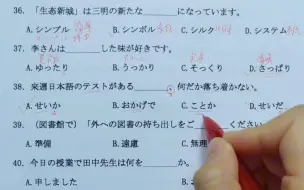 36. 「生态新城」は三明の新たな______になっています。
A.シンプル B.シンボル C.シルク D.システム
37. 李さんは______した味が好きです。
A.ゆったり B.うっかり C.そっくり D.さっぱり
38. 来週日本語のテストがある______、何だか落ち着かない。
A.せいか B.おかげで C.ことか D.せいだ
39. (図書館で)「外への図書の持ち出しをご______ください
A.準備 B.遠慮 C.無理
40. 今日の授業で田中先生は何を______か。
A.申しました B.